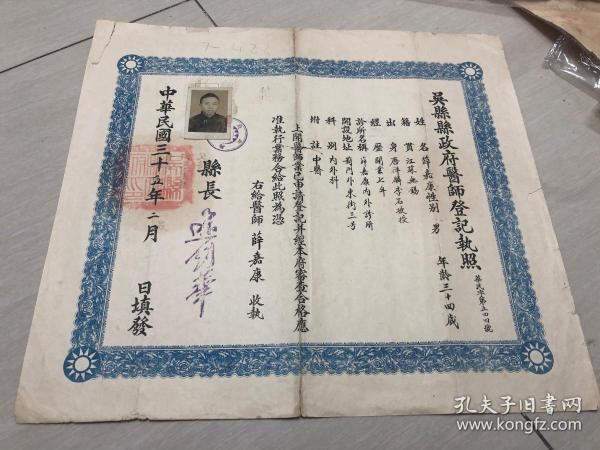 吳縣縣政府醫師登記執照
姓名 薛嘉康 性別 男 年齡 三十四歲
籍貫 江蘇無錫
出身
經歷 開業七年
診所名稱 薛嘉康內外診所
開設地址 葑門外東街三号
科別 內外科
附註 中醫
上開醫師業已申請登記並經本府審查合格應
准執行業務合給此照為憑
右給醫師 薛嘉康 收執
縣長
中華民國三十五年二月 日填發
孔夫子旧书网
www.kongfz.com